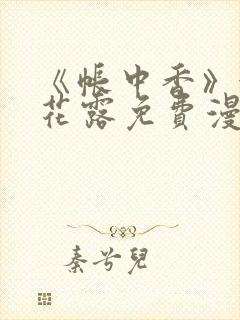 《帐中香》
花露免费漫
秦兮儿